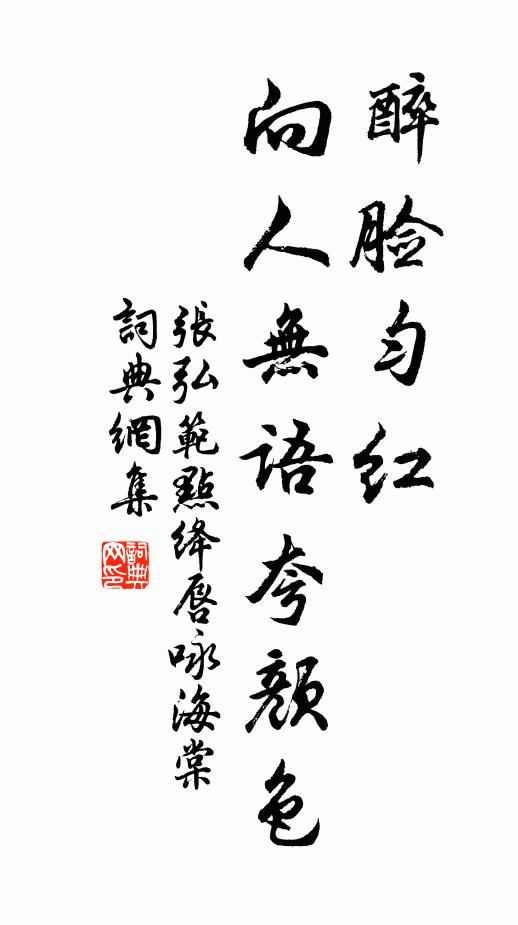 醉脸匀红
向人無语夸颜色
張弘範點绛唇咏海棠
詞典網集
詞典网印